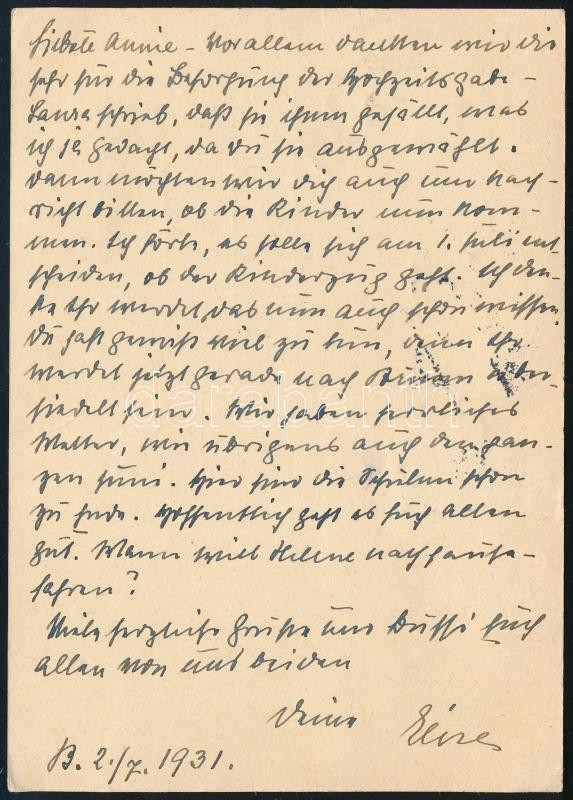 Liebste Annie – Vor allem danken wir dir
sehr für die Besorgung der Hochzeitsgabe –
Laura schrieb, daß sie ihnen gefällt, was
ich ja gedacht, da du sie ausgewählt.
Dann möchten wir dich auch um Nach-
richt bitten, ob die Kinder nun kom-
men. Ich hörte, es solle sich am 1. Juli ent-
scheiden, ob der Kinderzug geht. Ich den-
ke Ihr werdet das nun auch schon wissen.
Du hast gewiß viel zu tun, denn Ihr
werdet jetzt gerade nach über-
siedelt sein. Wir haben herrliches
Wetter, wie übrigens auch den gan-
zen Juni. Hier sind die Schulen schon
zu Ende. Hoffentlich geht es Euch allen
gut. Wann will Helene nachhause-
fahren?
Viele herzliche Grüße und Bussi Euch
allen von uns beiden
Deine
B. 2./7. 1931.
darabanth